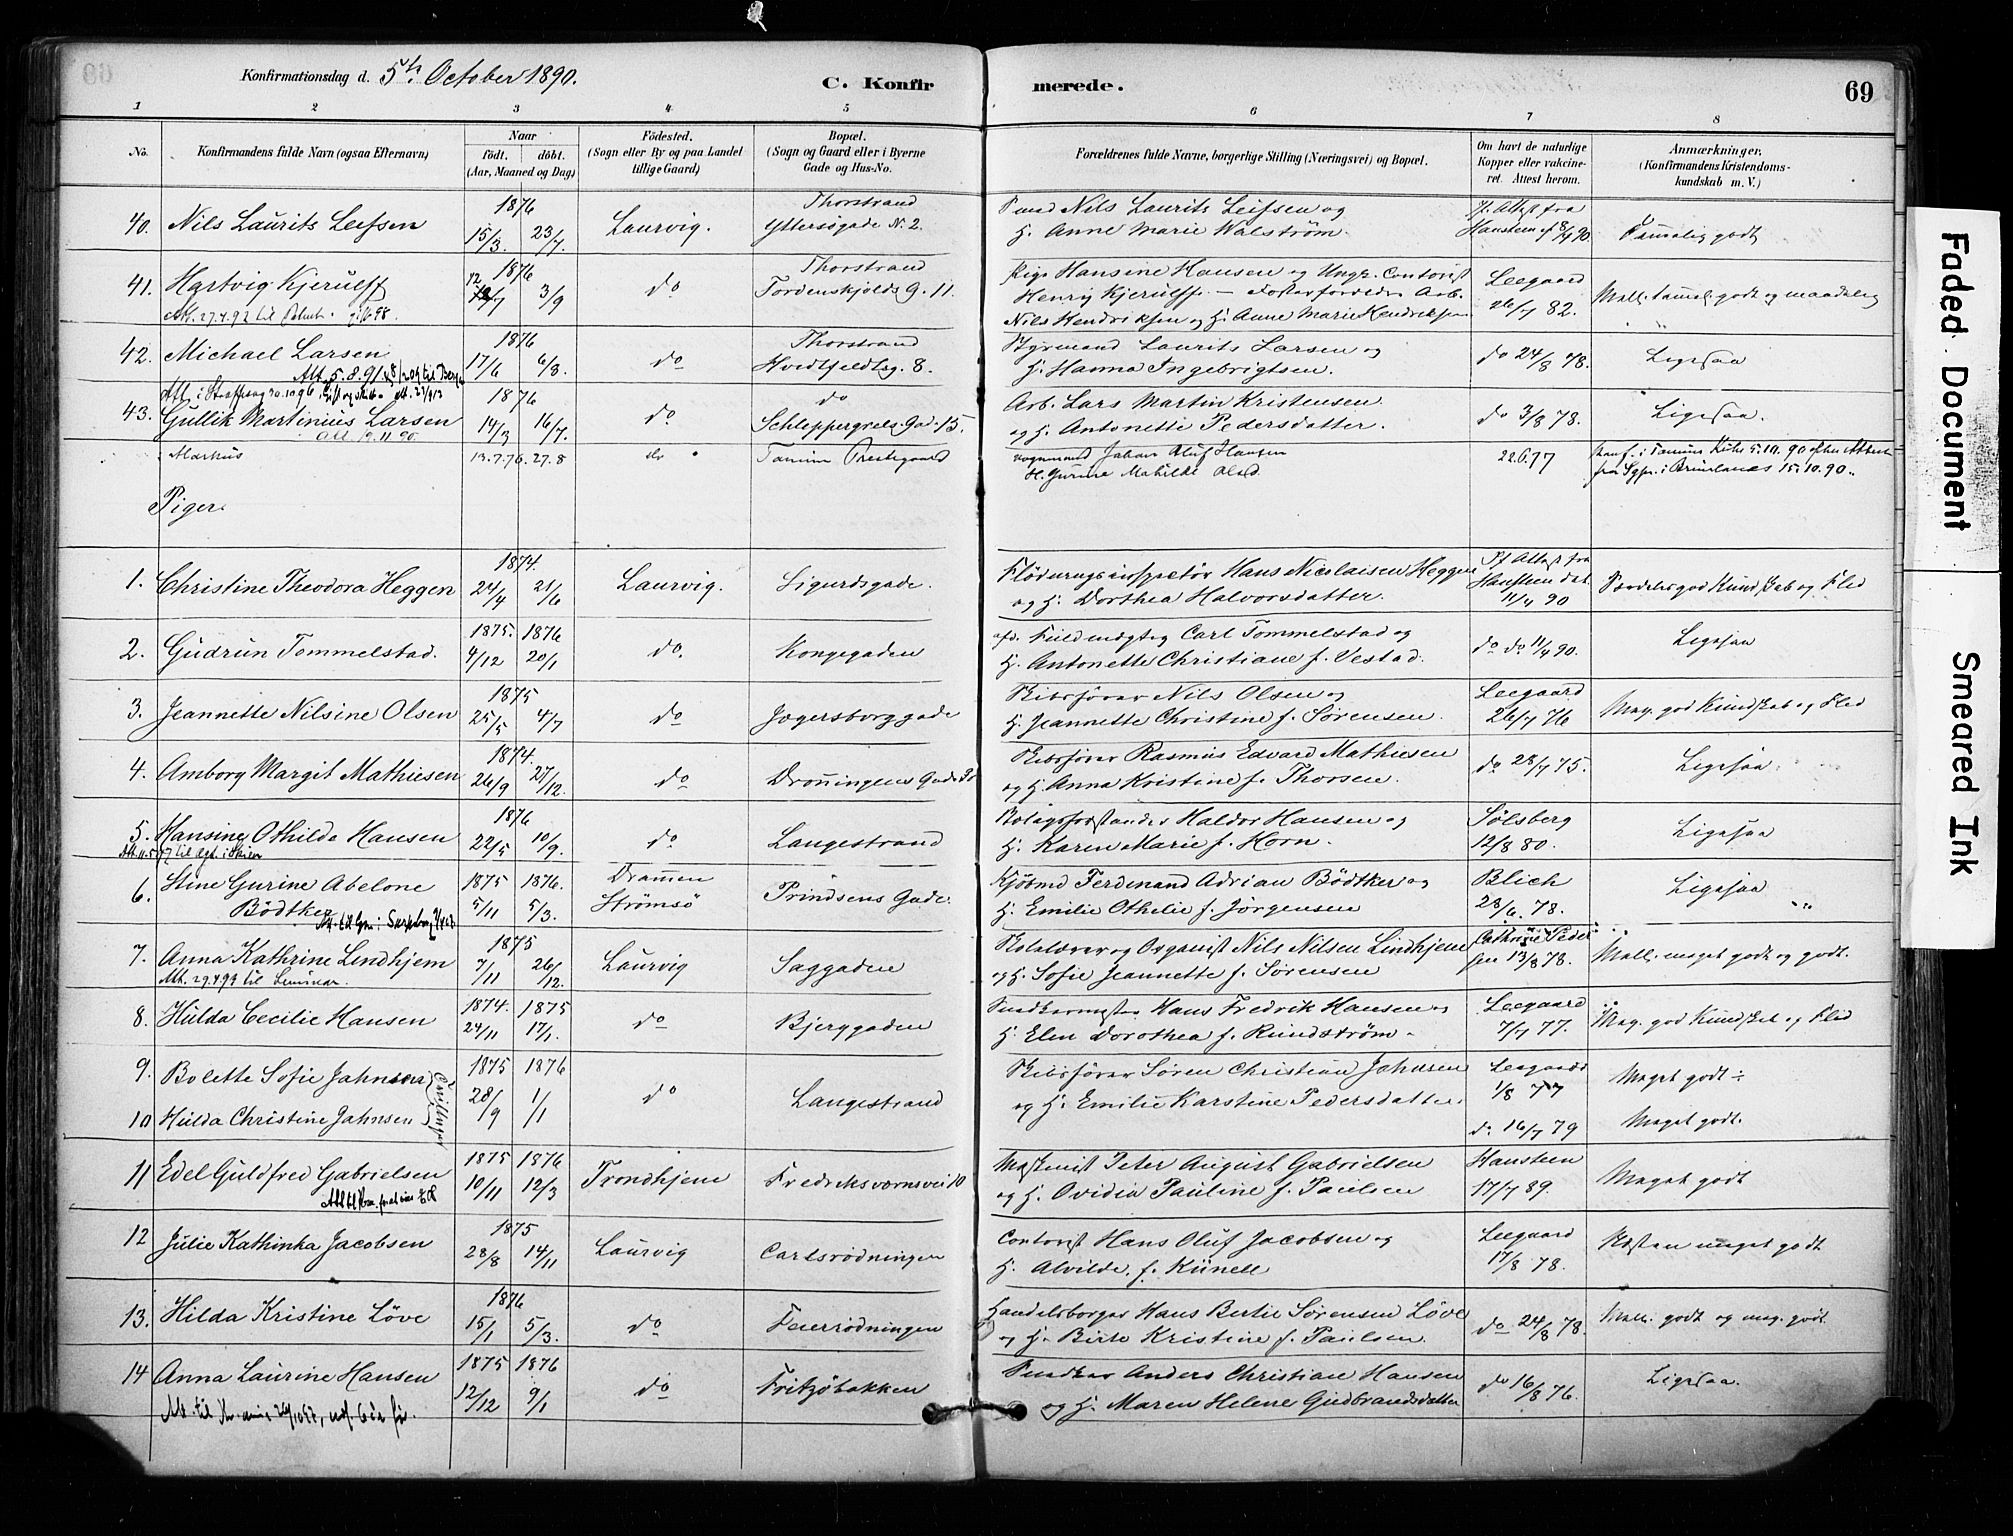 Konfirmationsdag d. 5te October 1890.
C. Konfirmerede.
69
1 2 3 4 5 6 7 8
No. Konfirmandens fulde Navn (ogsaa Efternavn)
Naar
födt. döbt.
(Aar, Maaned og Dag)
Födested.
(Sogn eller By og paa Landet
tillige Gaard)
Bopæl.
(Sogn og Gaard eller i Byerne
Gade og Hus-No.
Forældrenes fulde Navne, borgerlige Stilling (Næringsvei) og Bopæl.
Om havt de naturlige
Kopper eller vakcine-
ret. Attest herom.
Anmærkninger,
(Konfirmandens Kristendoms-
kundskab m. V.)
40. Nils Laurits Leifsen 1876 15/3. 23/7. Laurvig. Thorstrand
Yttersøgade N. 2.
Nils Laurits Leifsen og
H. Anne Marie Walström.
Attest fra
Hansteen 90
Temmelig godt
41. Hartvig Kjerulff 1876 12/7 3/9 do Thorstrand
Tordenskjolds G. 11.
Pige Hansine Hansen og Ungk. Contorist
Henry Kjerulff. – Fosterforældre Arb.
Nils Hendriksen og H. Anne Marie Hendriksen
Leegaard
26/7 82.
Mell. temel. godt og maadelig
Att. 27.4.92 til
42. Michael Larsen 1876 17/6 6/8. do Thorstrand
Hvidtfeldtsg. 8.
Styrmand Laurits Larsen og
H. Hanna Ingebrigtsen.
do 24/8 78.
Ligesaa
Att. 5.8.91
43. Gullik Martinius Larsen 1876 14/3 16/7. do do
Schleppegrels Gad. 15.
Arb. Lars Martin Kristensen
og H. Antonette Pedersdatter.
do 3/8 78.
Ligesaa.
Att. 19.11.90
Markus 13.7.76. 27.8 do Tanum Prestegaard
Vognmand Johan Aluf Hansen
H. Gurine Mathilde Olsd.
22.6.77
Konf. i Tanum Kirke 5.10.90 efter Attest
fra Sgpr. i Brunlanes 15.10.90.
Piger.
1. Christine Theodora Heggen 1874. 24/4 21/6 Laurvig. Sigurdsgade.
Flödningsinspektör Hans Nicolaisen Heggen
og H. Dorthea Halvorsdatter.
Attest fra
Hansteen dat.
11/4 90
Særdeles god Kundskab og Flid
2. Gudrun Tommelstad. 1875. 4/12 1876 20/1 do. Kongegaden
Fuldmægtig Carl Tommelstad og
H. Antonette Christiane f. Vestad.
do do 11/4 90.
Ligesaa
3. Jeannette Nilsine Olsen 1875 25/5 4/7 do Jegersborggade
Skibsförer Nils Olsen og
H. Jeannette Christine f. Sörensen.
Leegaard
26/7 76
Meg. god Kundskab og Flid
4. Amborg Margit Mathiesen 1874. 26/9 27/12. do Dronningens Gade
Skibsförer Rasmus Edvard Mathiesen
og H. Anna Kristine f. Thorsen.
do 28/7 75.
Ligesaa
5. Hansine Othilde Hansen 1876 22/5 10/9. do Langestrand
Boligsforstander Haldor Hansen og
H. Karen Marie f. Horn.
Sölsberg
12/8 80.
Ligesaa
6. Stine Gurine Abelone
Bödtker
1875 5/11 1876. 5/3. Drammen
Strömsö
Prindsens Gade.
Kjöbmd Ferdinand Adrian Bödtker og
H. Emilie Othilie f. Jörgensen
Blich
28/6. 78.
Ligesaa
7. Anna Kathrine Lindhjem 1875 7/11 26/12. Laurvig Saggaden
Skolelærer og Organist Nils Nilsen Lindhjem
og H. Sofie Jeannette f. Sörensen
Cathrine Peder
sen 13/8 78.
Mell. meget godt og godt.
Att. 29.4.93 til Seminar.
8. Hulda Cecilie Hansen 1874. 24/11 1875 17/1. do Bjerggaden
Snedkermester Hans Fredrik Hansen og
H. Elen Dorothea f. Rundström.
Leegaard
7/7 77.
Meg. god Kundskab og Flid
9. Bolette Sofie Jahnsen 1875 1876 28/9 1/1 do Langestrand
Skibsförer Sören Christian Jahnsen
og H. Emilie Karstine Pedersdatter.
Leegaard
1/8 77
Meget godt
Tvillinger
10 Hulda Christine Jahnsen
do 16/7 79
Meget godt.
11 Edel Guldfred Gabrielsen 1875 10/11 1876 12/3 Trondhjem Fredriksværnsvei 10
Maskinist Peter August Gabrielsen
og H. Ovidia Pauline f. Paulsen
Hansteen
17/7 89.
Meget godt
12 Julie Kathinka Jacobsen 1875 28/8 14/11 Laurvig Carlsrödningen
Contorist Hans Oluf Jacobsen og
H. Alvilde f. Künell
Leegaard
17/8 78.
Næsten meget godt
13. Hilda Kristine Löve 1876 15/1 5/3. do Feierrödningen
Handelsborger Hans Bertie Sörensen Löve
og H. Birte Kristine f. Paulsen.
do 24/8 78.
Mell. godt og meg. godt
14 Anna Laurine Hansen 1875 12/12 1876 9/1 do Fritzöbakken
Snedker Anders Christian Hansen
og H. Maren Helene Gudbrandsdatter
do 16/8 76.
Ligesaa.
Faded Document
Smeared Ink